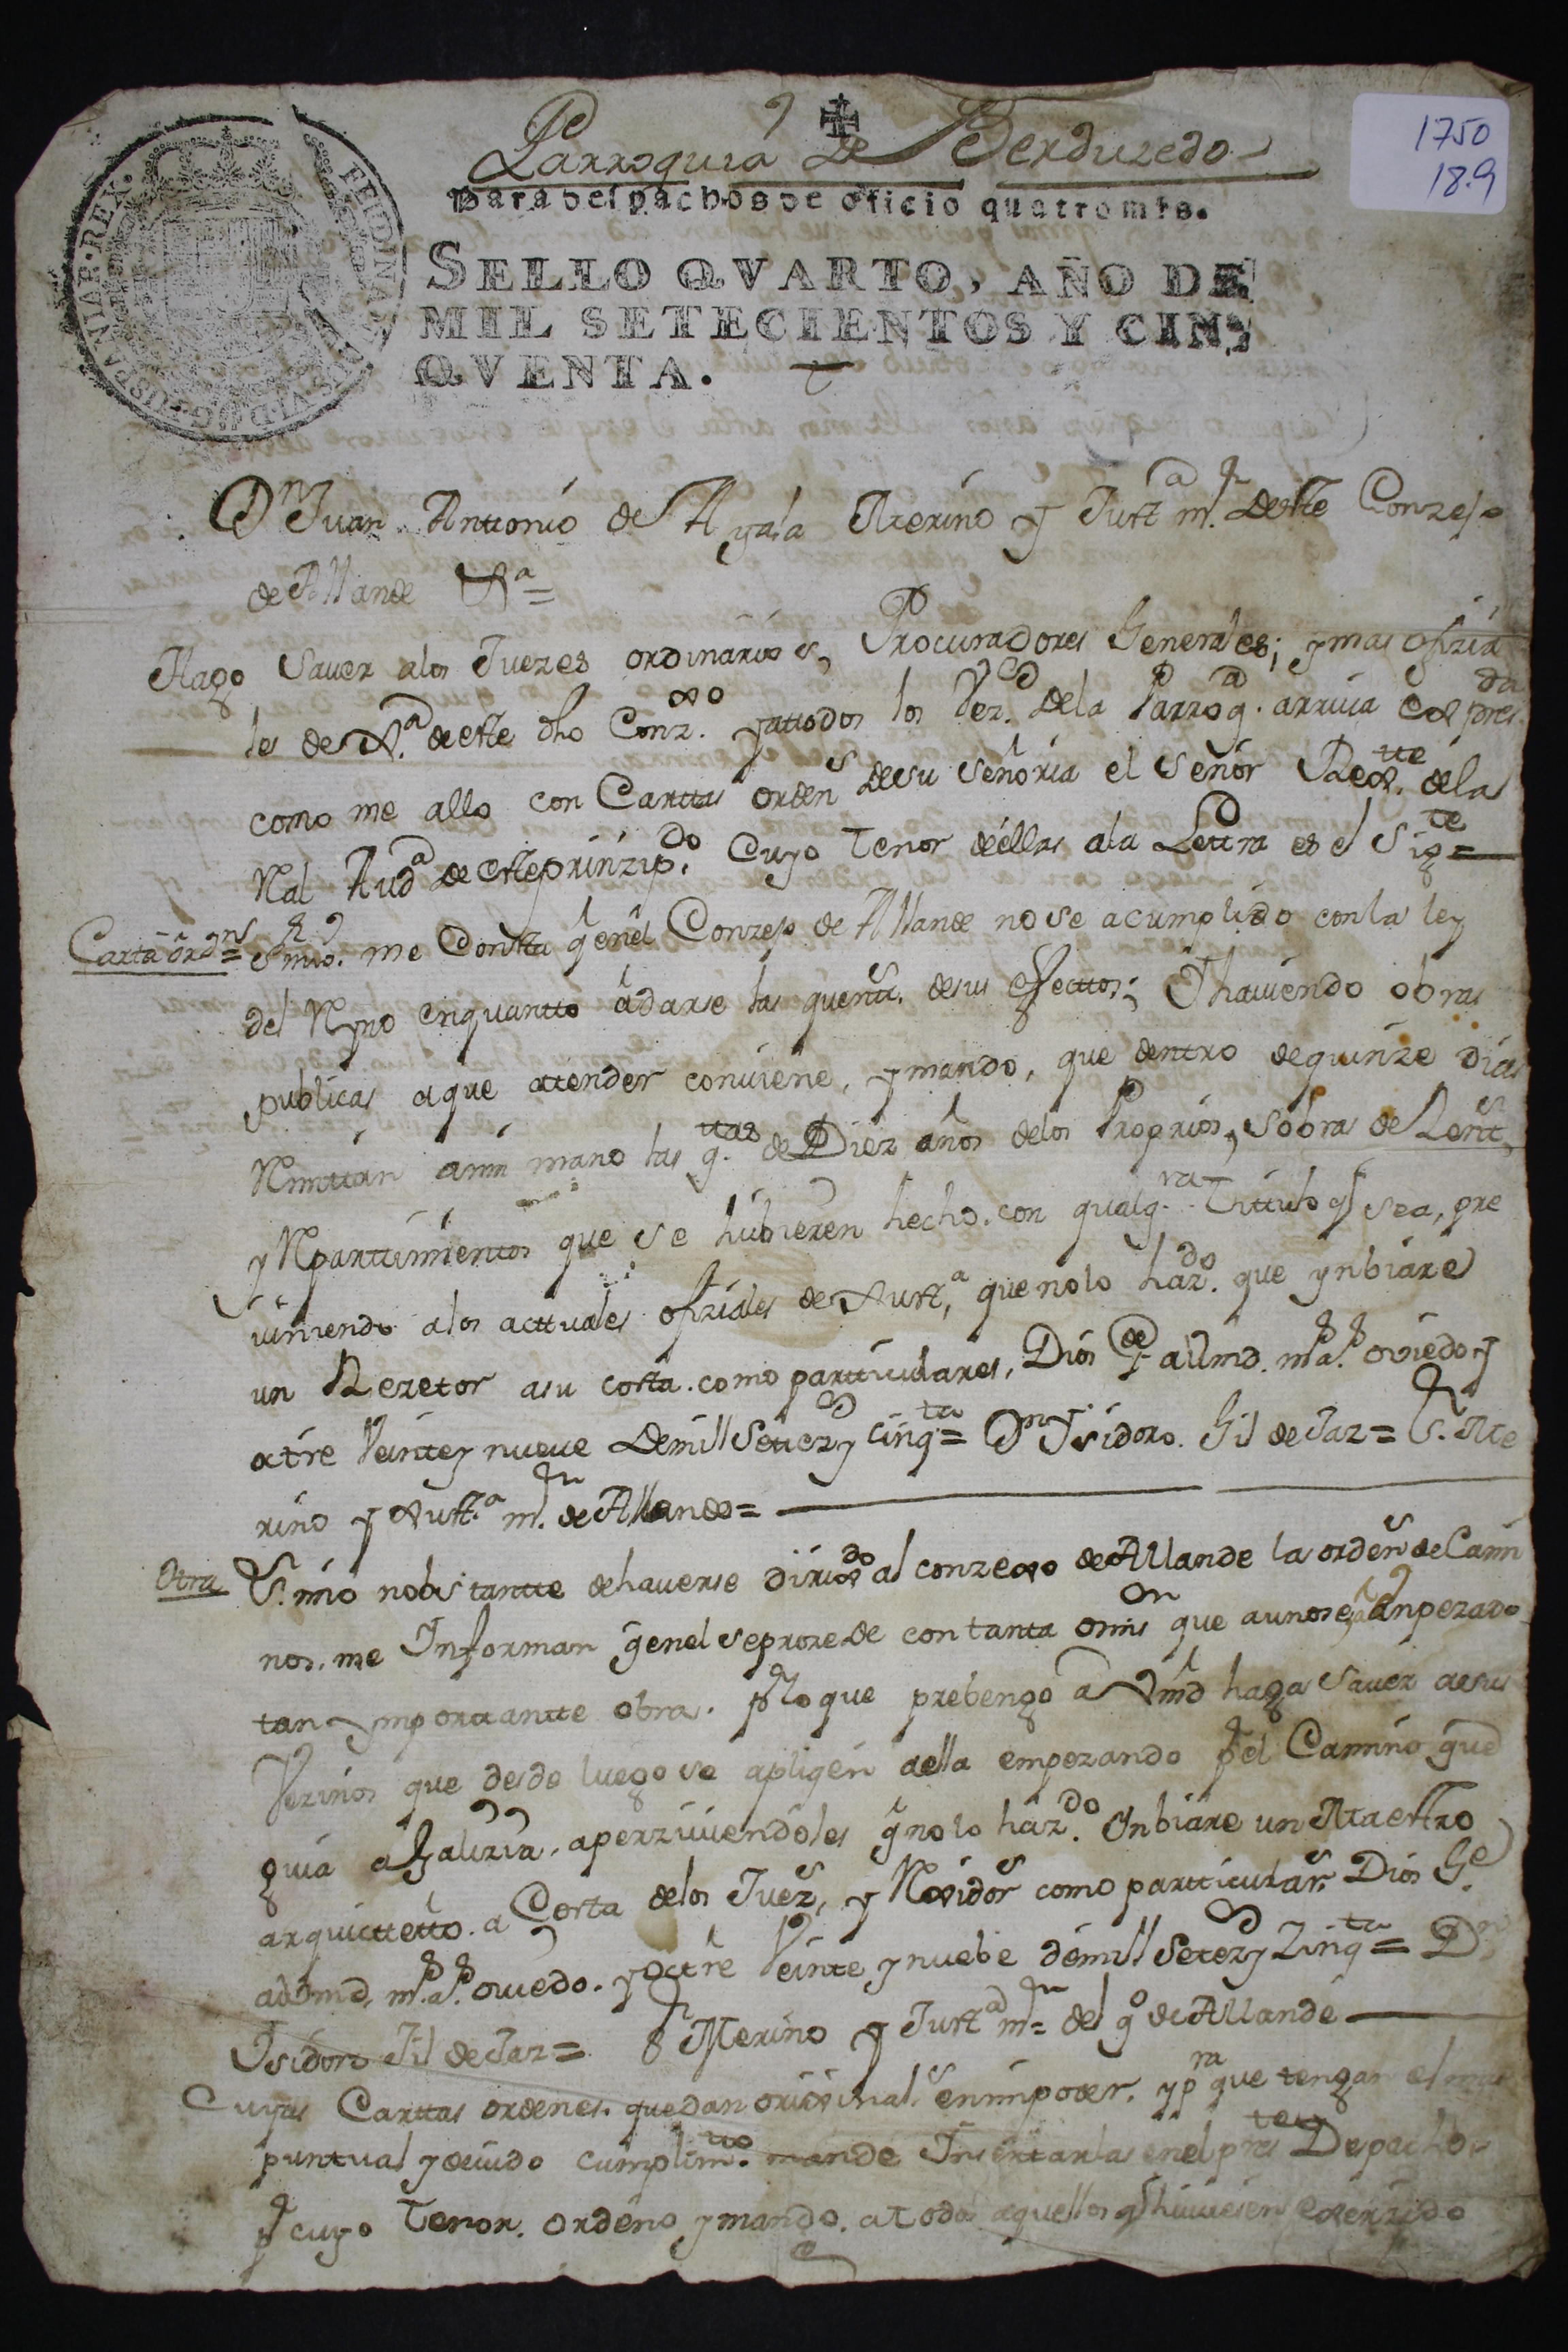 Parroquia de Berduzedo
1750
18.9
Para despachos de oficio quatro mrs.
SELLO QVARTO, AÑO DE
MIL SETECIENTOS Y CIN-
QVENTA.
HISPANIAR·REX· FERDINANDVS·VI·D·G·
Dn Juan Anttonio de Ayala Merino y Justa mr deste Conzejo
de Allande Va =
Hago Saver a los Juezes ordinarios, Procuradores Generales; y mas ofizia
les de Xa. de este dho Conzxo. y attodos los Vezs. de la Parroqa. arriva expresda
como me allo con Carttas ordens de su señoria el señor Rexte. de la
Rl Auda de este prinzipdo. Cuyo tenor dellas a la Lettra es el Sigte =
Carta ordn = Sr mio. me Consta q en el Conzejo de Allande no se a cumplido con la ley
del Ryno en quantto a darse las quentts. de sus efecttos; I haviendo obras
publicas a que atender conviene, y mando, que dentro de quinze dias
Rmittan a mi mano las qttas de Diez años de los Proprios, sobras de Rentts,
y Rparttimientos que se hubieren hecho. con qualqra. tittulo q sea, pre
viniendo a los acttuales ofiziales de Xusta, que no lo hazdo. que ynbiare
un Rezetor a su costa. como partticulares, Dios gde a Vmd. ms. as. oviedo y
otre Veinte y nueve de mill Settezs y cinqta = Dn Ysidoro. Gil de Jaz = Sr. Me
rino y Xusta. mr. de Allande =
Otra Sr. mio no obstantte de haverse dirixdo al conzexo de Allande la ordens de Cami
nos. me Informan q en el se prozede con tanta omison que aun no se a enpezado
tan ymporttantte obra. pr lo que prebengo a Vmd haga saver a esus
Vezinos que desde luego se apliqen a ella empezando pr el Camino que
guia a Galizia. aperziviendoles q no lo hazdo. Inbiare un Maestro
arquittetto. a Costa de los Juezs, y Rexidors como partticulars. Dios Ge
a Vmd. ms. as. oviedo. y octre Veinte y nuebe de mill Setezs y Zinqta = Dn
Isidoro Jil de Jaz = Sr Merino y Justa mr = del qo de Allande
Cuyas Carttas ordenes. quedan orixinals en mi poder. y pra que tengan el mas
puntual y devido cumplimtto. mande Insertarlas en el preste Despacho
pr cuyo tenor. ordeno y mando. a todos aquellos q huviesen exerzido